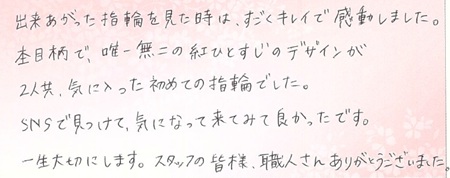 出来あがった指輪を見た時は、すごくキレイで感動しました。
杢目柄で、唯一無二の紅ひとすじのデザインが
2人共、気に入った初めての指輪でした。
SNSで見つけて、気になって来てみて良かったです。
一生大切にします。スタッフの皆様、職人さんありがとうございました。